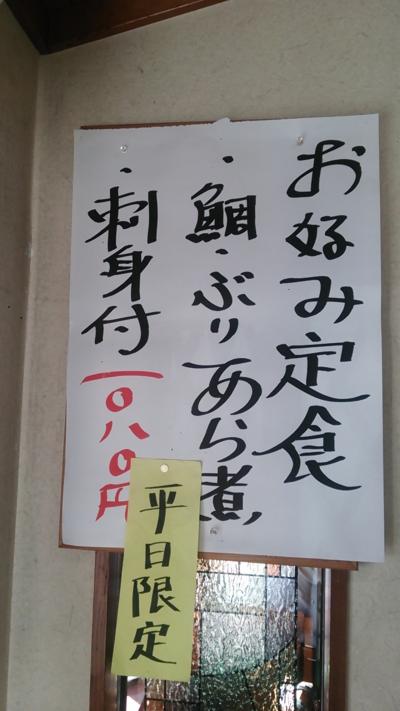 お好み定食
・鯛・ぶりあら煮
・刺身付一〇八〇円
平日限定